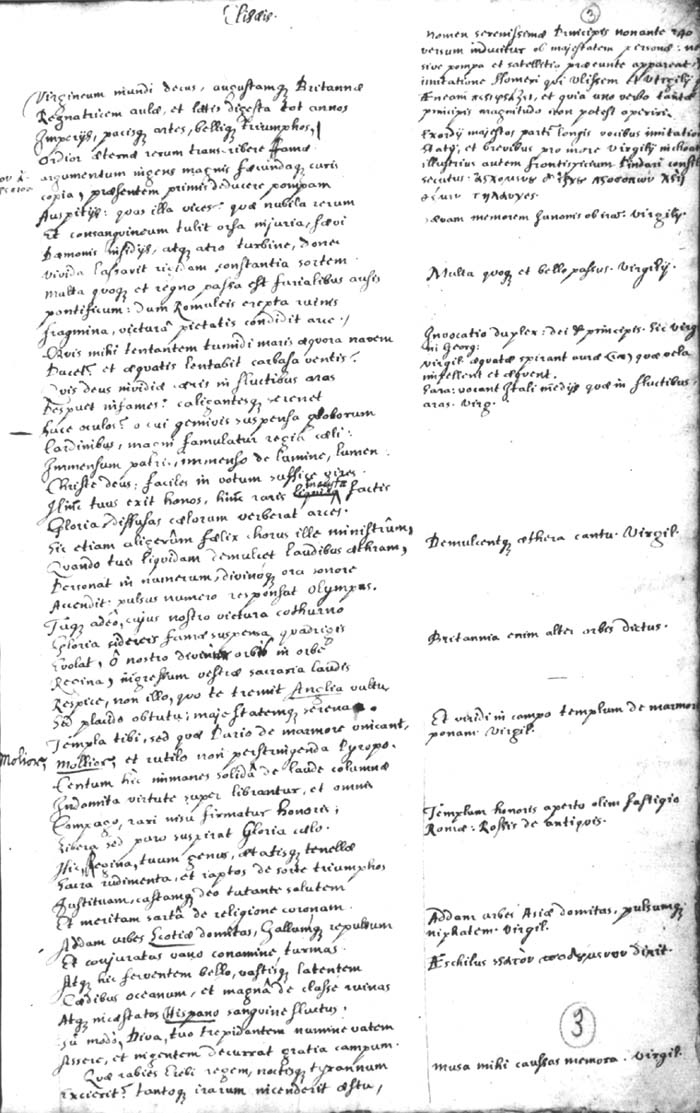 Elisæis.
Virgineum mundi decus, augustamq Britannæ
Regnatricem aulæ, et lætis digesta tot annos
Imperijs, pacisq artes, belliq triumphos,
Ordior æternæ rerum transcribere famæ.
argumentum ingens magni fæcundaq curis
copia, præsentem primis deducere pompam
Auspitijs: quas illa vices? quæ nubila rerum
Et consanguineum tulit orsa injuria, sævi
Dæmonis insidijs, atq atro turbine, donec
vivida lassavit rigidam constantia sortem.
Multa quoq et regno passa est furialibus ausis
pontificum: dum Romuleis erepta ruinis
fragmina, victurâ pietatis condidit arce.
Quis mihi tentantem tumidi maris æquora navem
Ducet? et æquatis lentabit carbasa ventis?
Quis deus invidiæ cæcis in fluctibus aras
Despuet infames? caligantesq serenet
Luce oculos? o cui geminis suspensa globorum
Cardinibus, magni famulatur regia cæli:
Immensum patris, immenso de lumine, lumen
Christe deus: faciles in votum suffice vires.
Hinc tuus exit honos, hinc raris factis
Gloria, diffusas cælorum verberat arces.
Sic etiam aligerûm fælix chorus ille ministrûm,
Quando tuis liquidam demulcet laudibus æthram,
Personat in numerum, divinóq ora sonore
Accendit. pulsus numero responsat Olympus.
Tuq adeò, cujus nostro victura cothurno
Gloria sidereis famæ suspensa quadrigis
Evolat, Ô nostro orbis in orbe
Regina, ingressum vestræ sacraria laudis
Respice, non illo, quo te tremit Anglia vultu
Sed placido obtutu; majestatemq serena.
Templa tibi, sed quæ Pario de marmore vincant,
Moliore, Molliore, et rutilo non perstringenda Pyropo.
Centum hic immanes solidâ de laude columnæ
Indomita virtute super librantur, et omnis
Compago, rari nisu firmatur honoris;
Libera sed puro suspirat Gloria cælo.
Hic Regina, tuum genus, ætatisq tenellæ
Sacra rudimenta, et raptos de sorte triumphos
Instituam, castamq deo tutante salutem
Et meritam sartâ de religione coronam.
Addam urbes Scotiæ domitas, Gallumq repulsum
Et conjuratas vano conamine turmas.
Atq hic ferventem bello, vastisq latentem
Cædibus oceanum, et magnâ de classe ruinas
Atq incæstatos Hispano sanguine fluctus.
Tu modo, Diva, tuo trepidantem numine vatem
Assere, et ingentem decurrat gratia campum.
Quæ rabies Erebi regem, noctisq tyrannum
Excierit? tantoq irarum incenderit æstu,
3
Nomen serenissimæ Principis nonante
versum inducitur ob majestatem personæ: ne
sive pompa et satellitio præeunte appareat:
imitatione Homeri qui Ulissem et Virgilij
Æneam et quia uno verbo tantæ
principis magnitudo non potest operiri.
Exordij majestos partim longis vocibus imitatione
Statij, et brevibus pro more Virgilij inchoat
illustrius autem frontispicium Pindari consil
secutus.
sævam memorem Junonis ob iram. Virgilij.
Multa quoq et bello passus. Virgilij.
Invocatio duplex: dei et principis. Sic Virg
in Georg:
Virgil. æquatæ spirant auræ quæ vela
impellent et æquent.
Saxa: vocant Itali medijs quæ in fluctibus
aras. Virg.
Demulcentq æthera cantu. Virgil.
Britannia enim alter orbis dictus.
Et viridi in campo templum de marmore
ponam. Virgil.
Templum honoris aperto olim fastigio
Romæ: Rossis de antiquis.
Addam urbes Asiæ domitas, pulsumq
niphatem. Virgil.
Æschilus dixit.
3
Musa mihi caussas memora. Virgil.